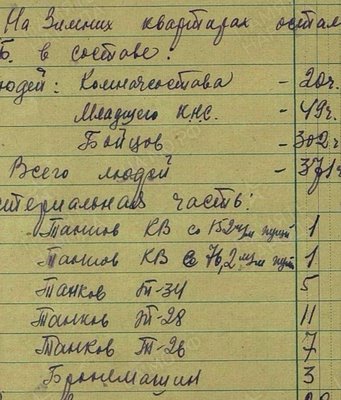 На Зимних квартирах остал
Б. в составе:
юдей: Комначсостава - 20ч.
Младшего К.Н.С. - 49ч.
Бойцов - 302ч
Всего людей - 371ч
териальная часть:
Танков КВ со 152 м/м пушк 1
Танков КВ с 76,2 м/м пуш 1
Танков Т-34 5
Танков Т-28 11
Танков Т-26 7
Бронемашин 3